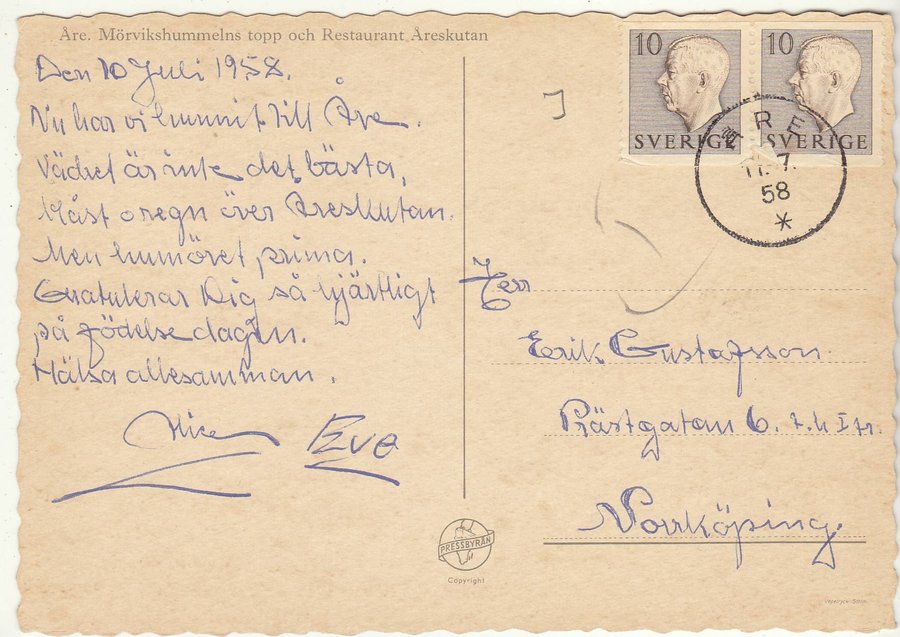 Åre. Mörvikshummelns topp och Restaurant Åreskutan
Den 10 Juli 1958.
Nu har vi hunnit till Åre.
Vädret är inte det bästa,
blåst o regn över Åreskutan.
Men humöret prima.
Gratulerar Dig så hjärtligt
på födelsedagen.
Hälsa allesamman.
Eve
10 SVERIGE
10 SVERIGE
ÅRE
11. 7.
58
Herr
Erik Gustafsson.
Prästgatan 6.
Norrköping.
PRESSBYRÅN
Copyright